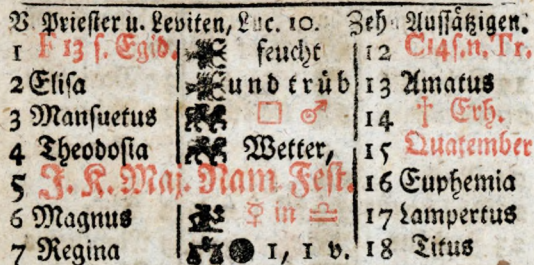 V. Priester u. Leviten, Luc. 10. Zeh Aussätzigen.
1 F 13 s. Egid. feucht 12 C14s.n. Tr.
2 Elisa und trüb 13 Amatus
3 Mansuetus □ ♂ 14 † Erh.
4 Theodosia Wetter, 15 Quatember
5 J. K. Maj. Nam Fest. 16 Euphemia
6 Magnus ☿ in ♎ 17 Lampertus
7 Regina ● 1, 1 v. 18 Titus